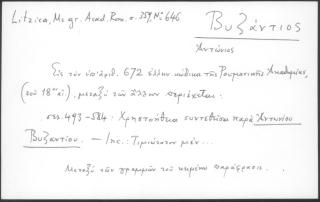 Litzica, Ms gr. Acad. Rom. σ. 359, Nο 646
Βυζάντιος
Ἀντώνιος
Εἰς τὸν ὑπ' ἀριθ. 672 ἑλλην. κώδικα τῆς Ρουμανικῆς Ἀκαδημίας,
(τοῦ 18ου αἰ.), μεταξὺ τῶν ἄλλων περιέχεται:
σελ. 493-584: Χρηστοήθεια συντεθεῖσα παρὰ Ἀντωνίου
Βυζαντίου. — Inc.: Τιμιώτατον μὲν ...
Μεταξὺ τῶν γραμμῶν τοῦ κειμένου παράφρασις.